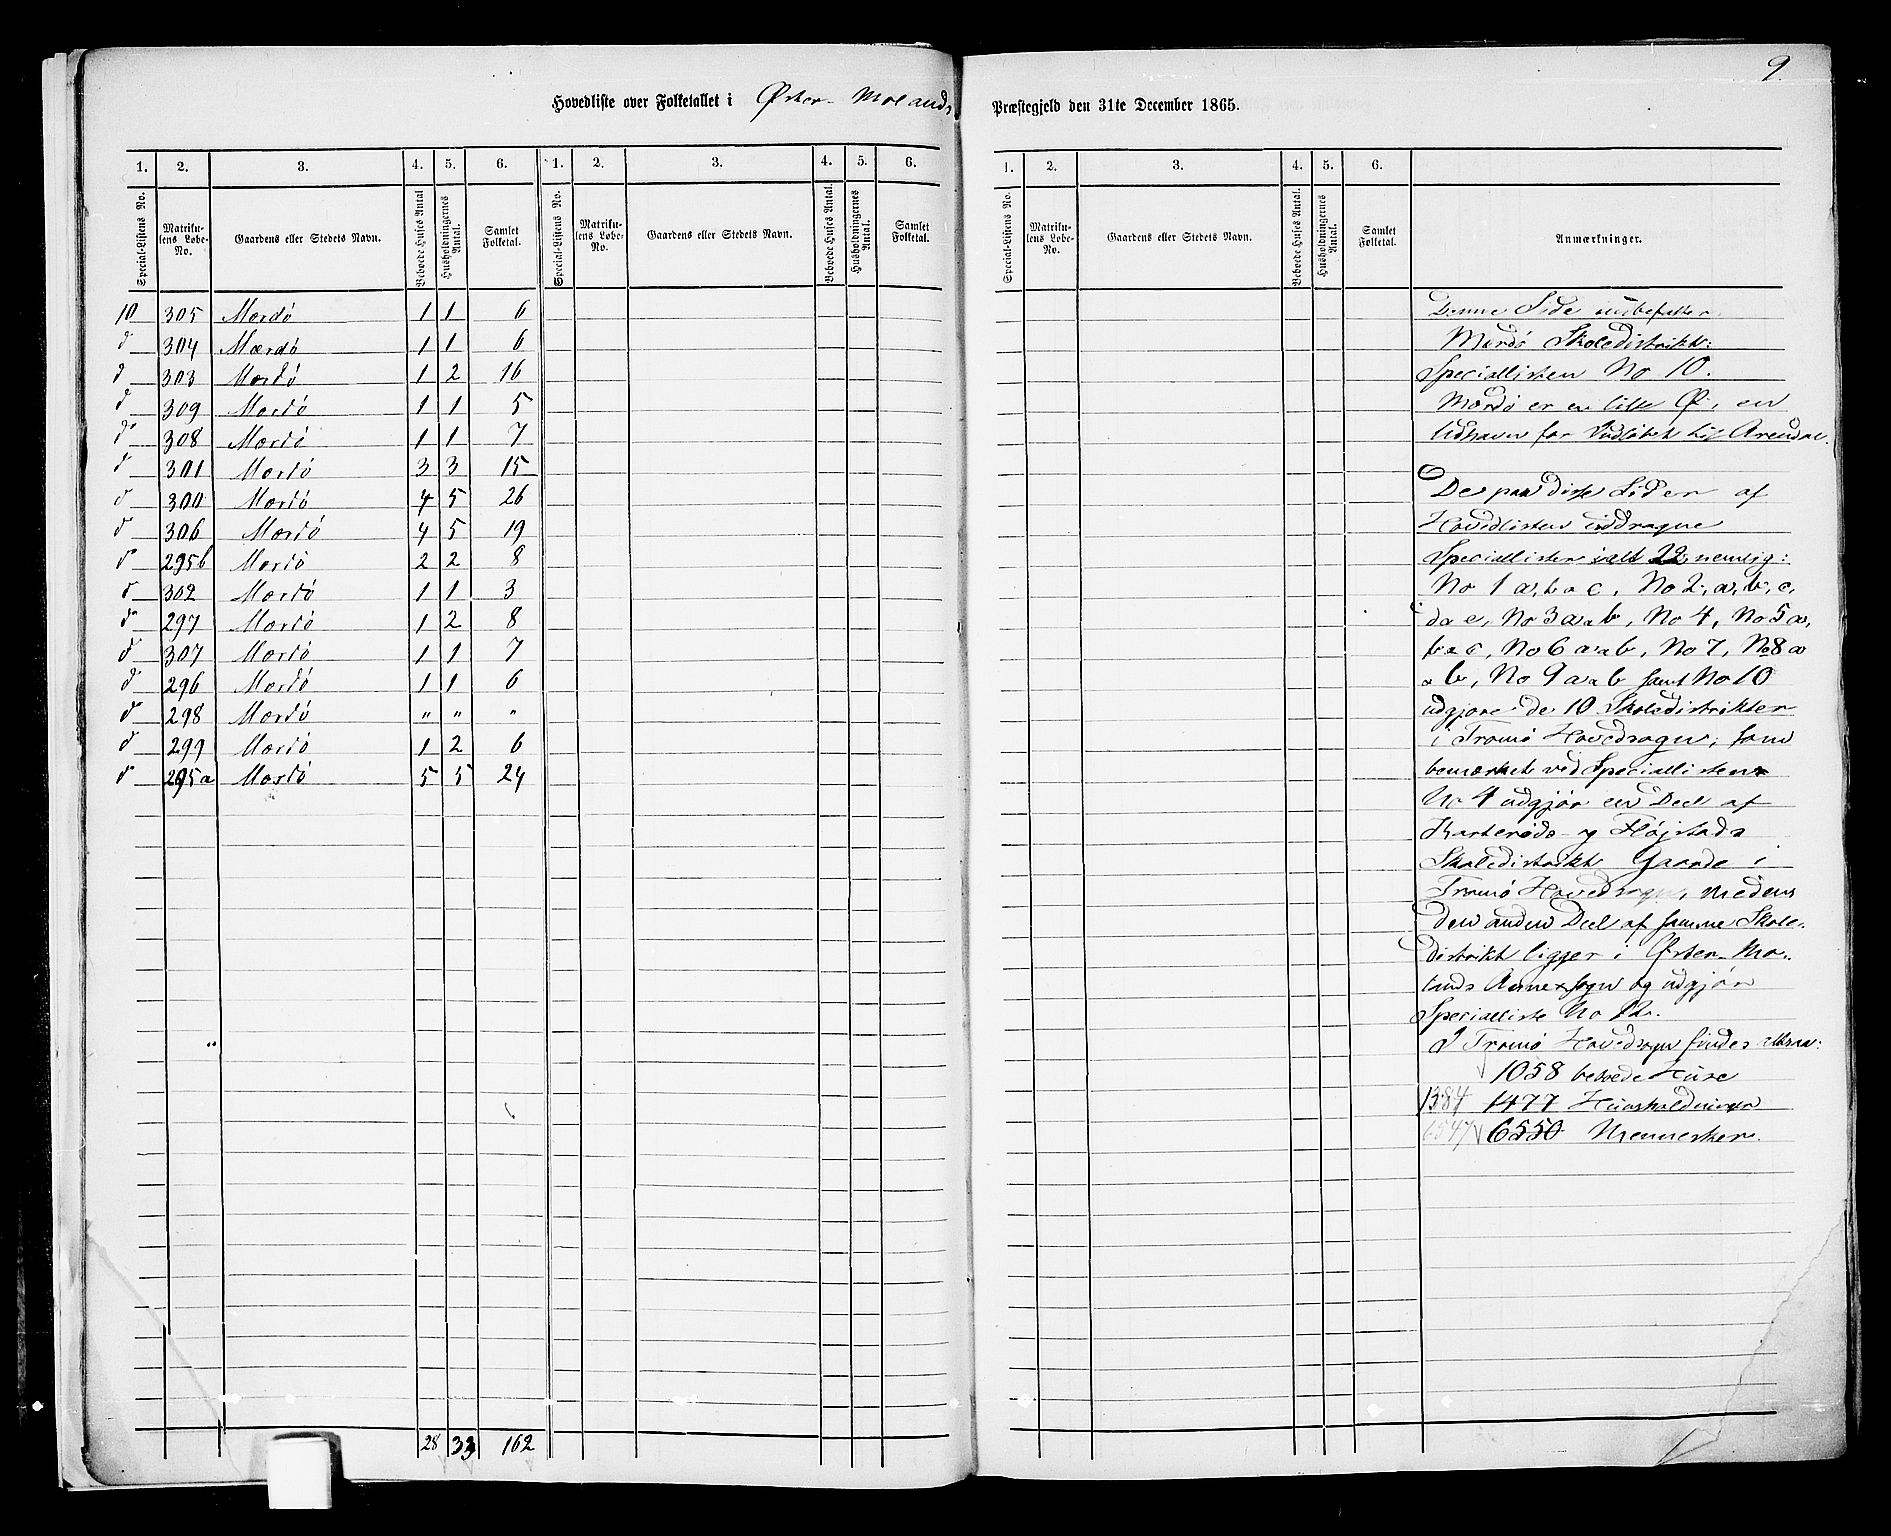 9.
Hovedliste over Folketallet i Øster-Molands Præstegjeld den 31te December 1865.
1. 2. 3. 4. 5. 6. 1. 2. 3. 4. 5. 6. 1. 2. 3. 4. 5. 6.
Special-Listens No. Matrikulens Løbe-No. Gaardens eller Stedets Navn. Beboede Huses Antal Husholdningernes Antal. Samlet Folketal. Special-Listens No. Matrikulens Løbe-No. Gaardens eller Stedets Navn. Beboede Huses Antal. Husholdningernes Antal. Samlet Folketal. Special-Listens No. Matrikulens Løbe-No. Gaardens eller Stedets Navn. Beboede Huses Antal. Husholdningernes Antal. Samlet Folketal. Anmærkninger.
10 305 Mærdö 1 1 6
d 304 Mærdö 1 1 6
d 303 Mærdö 1 2 16
d 309 Mærdö 1 1 5
d 308 Mærdö 1 1 7
d 301 Mærdö 3 3 15
d 300 Mærdö 4 5 26
d 306 Mærdö 4 5 19
d 295b Mærdö 2 2 8
d 302 Mærdö 1 1 3
d 297 Mærdö 1 2 8
d 307 Mærdö 1 1 7
d 296 Mærdö 1 1 6
d 298 Mærdö " " "
d 299 Mærdö 1 2 6
d 295a Mærdö 5 5 24
28 33 162
Denne Side indbefatter
Mærdö Skoledistrikt:
Speciallisten No 10.
Mærdö er en liden Ø, en
Udhavn for Indløbet til Arendal.
De paa disse Sider af
Hovedlisten inddragne
Speciallister ialt 22, nemlig:
No 1 a, b & c, No 2, a, b, c,
d & e, No 3 a & b, No 4, No 5 a,
b & c, No 6 a & b, No 7, No 8 a
& b, No 9 a & b samt No 10
udgjøre de 10 Skoledistrikter
i Tromö Hovedsogn, som
bemærket ved Speciallisten
No 4 udgjør en Deel af
og Højstads
Skoledistrikts Gaarde i
Tromö Hovedsogn, medens
den anden Deel af samme Skole-
distrikt ligger i Øster-Mo-
lands Annexsogn og udgjør
Specialliste No 12.
I Tromö Hovedsogn findes
1058 beboede Huse
1384 1477 Huusholdninger
6547 6550 Mennesker.